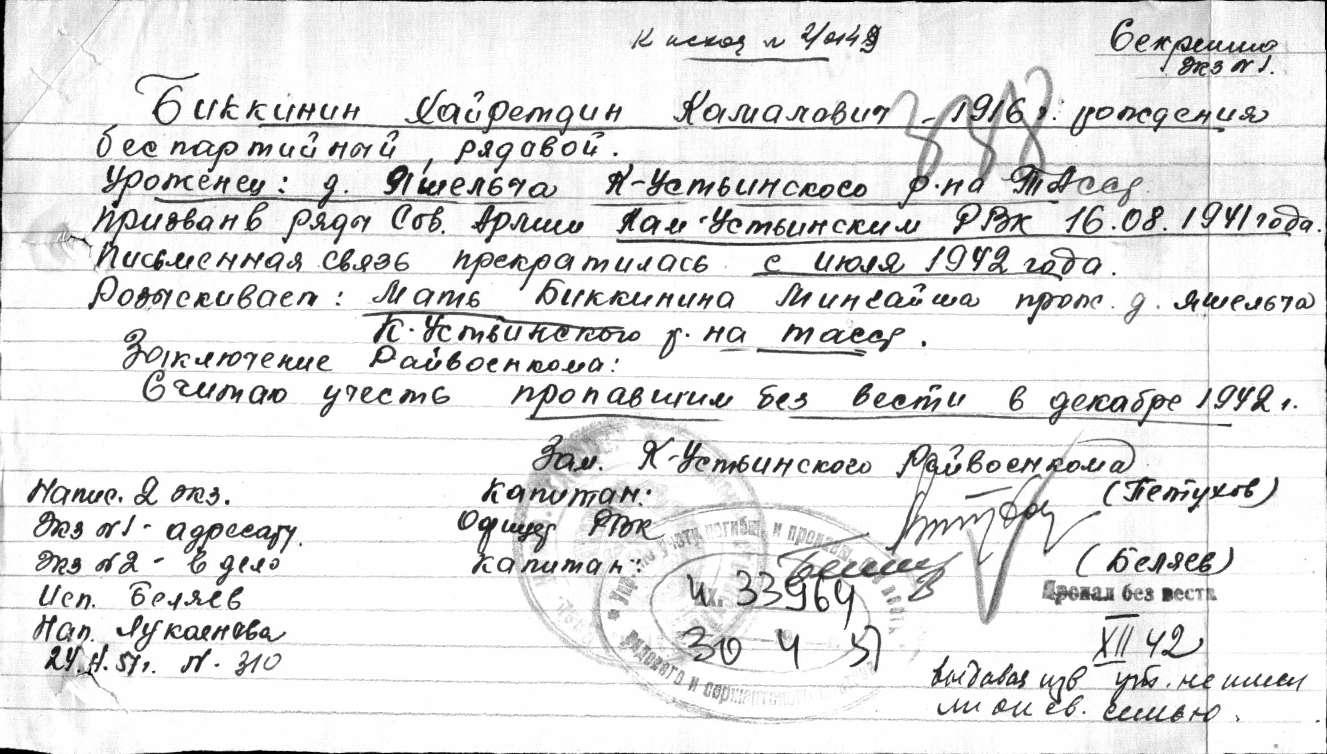 К исход № 2/0149
Секретно
Экз №1.
Биккинин Хайретдин Камалович - 1916 г. рождения
беспартийный, рядовой.
Уроженец: д. Яшельча К-Устьинского р-на ТАССР
Призван в ряды Сов. Армии Кам-Устьинским РВК 16.08.1941 года.
Письменная связь прекратилась с июля 1942 года.
Розыскивает: Мать Биккинина Мингайша прож. д. Яшельча
К-Устьинского р-на ТАССР.
Заключение Райвоенкома:
Считаю учесть пропавшим без вести в декабре 1942 г.
Зам. К-Устьинского Райвоенкома
Капитан: (Петухов)
Офицер РВК
Капитан: (Беляев)
Напис. 2 экз.
Экз №1 - адресату.
Экз №2 - в дело
Исп. Беляев
Нап. Лукоянова
24. 57г. №. 310
Упр. по учету погибш. и пропавш. без вести
рядового и сержантского
Вх. 33964
30 4 57
Пропал без вести
XII 42